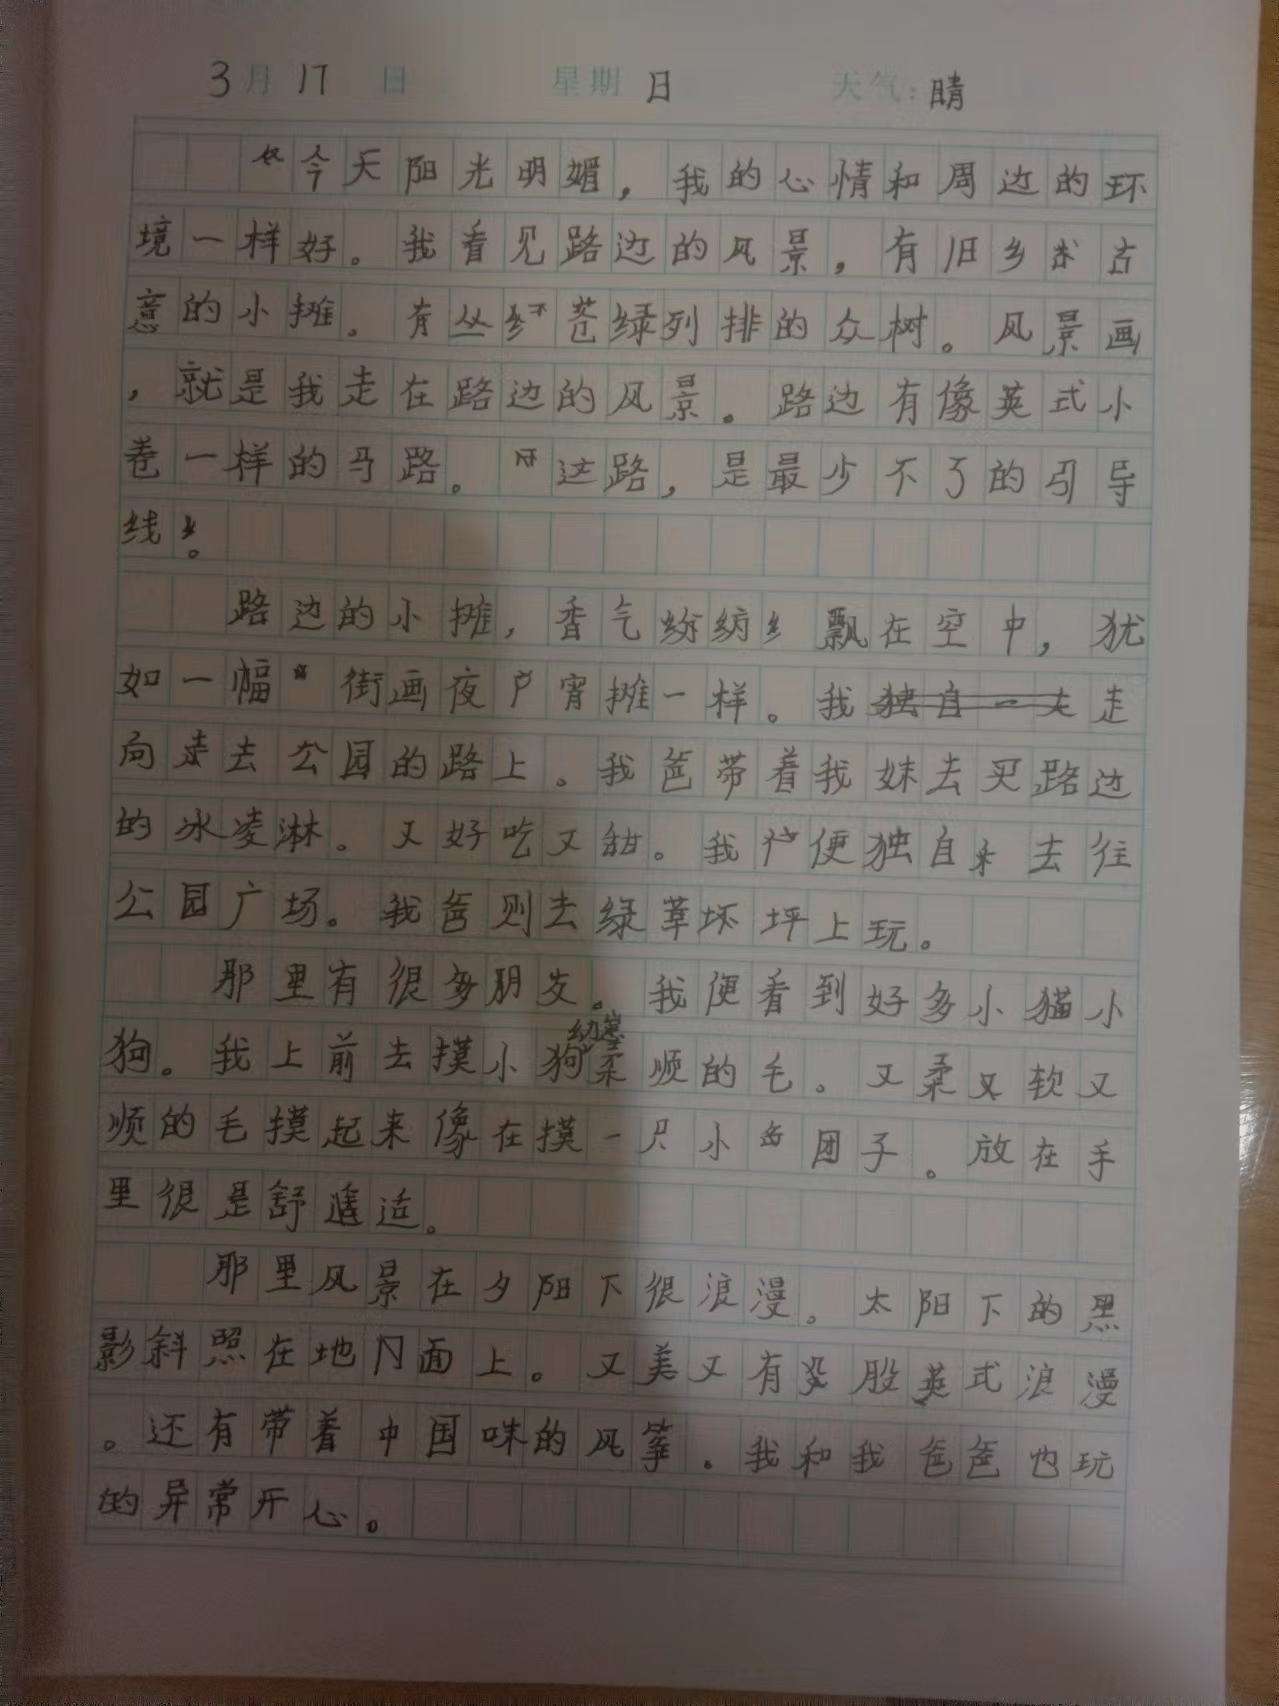 3月17日 星期日 天气：晴
今天阳光明媚，我的心情和周边的环
境一样好。我看见路边的风景，有旧乡古
意的小摊。有丛苍绿列排的众树。风景画
，就是我走在路边的风景。路边有像英式小
巷一样的马路。这路，是最少不了的引导
线。
路边的小摊，香气纷纷飘在空中，犹
如一幅街画夜宵摊一样。我走
向去公园的路上。我爸带着我妹去买路边
的冰凌淋。又好吃又甜。我便独自去往
公园广场。我爸则去绿草坪上玩。
那里有很多朋友。我便看到好多小猫小
狗。我上前去摸小狗柔顺的毛。又柔又软又
顺的毛摸起来像在摸一只小团子。放在手
里很是舒适。
那里风景在夕阳下很浪漫。太阳下的黑
影斜照在地面上。又美又有股英式浪漫
。还有带着中国味的风筝。我和我爸爸也玩
的异常开心。